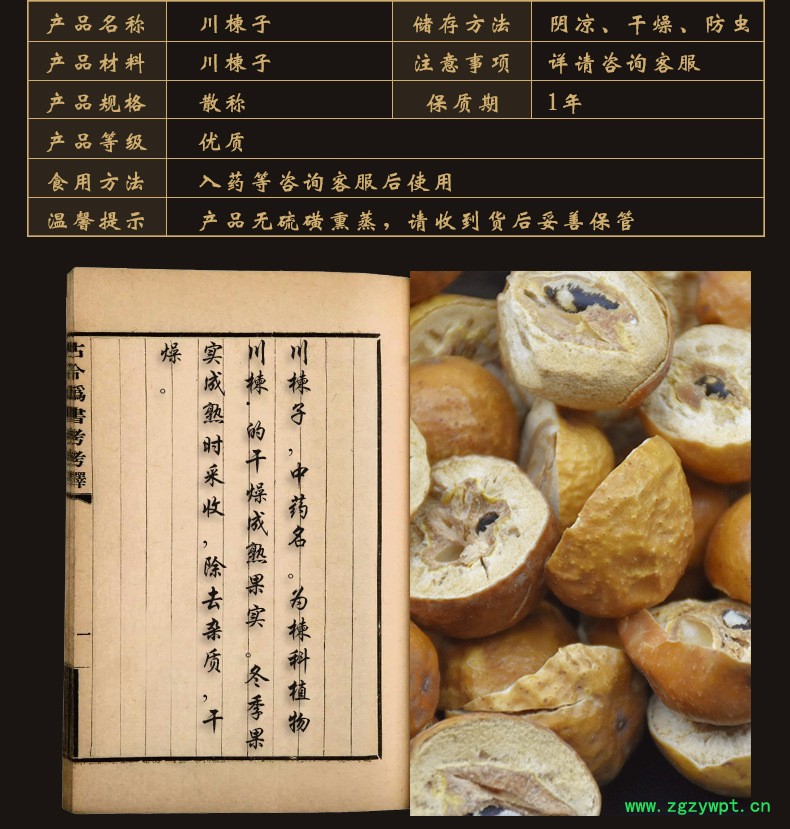 产品名称 川楝子 储存方法 阴凉、干燥、防虫
产品材料 川楝子 注意事项 详请咨询客服
产品规格 散称 保质期 1年
产品等级 优质
食用方法 入药等咨询客服后使用
温馨提示 产品无硫磺熏蒸，请收到货后妥善保管
川楝子，中药名。为楝科植物
川楝.的干燥成熟果实。冬季果
实成熟时采收，除去杂质，干
燥。
古今爲書考考釋
一
www.zgzywpt.cn